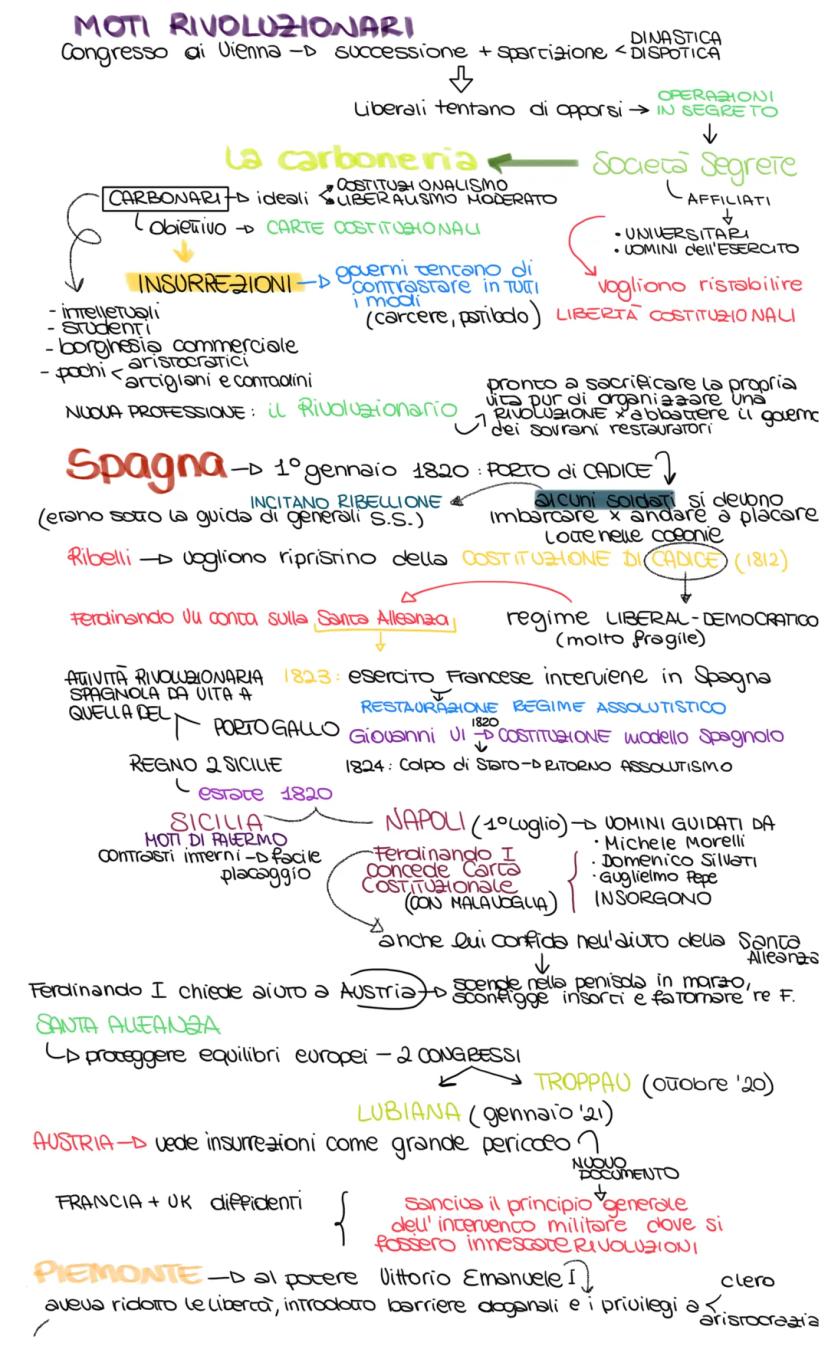 MOTI RIVOLUZIONARI
Congresso di Vienna → successione + spartizione < DINASTICA
DISPOTICA
Liberali tentano di opporsi → OPERAZIONI
IN SEGRETO
La carboneria ← Società Segrete
CARBONARI → ideali COSTITUZIONALISMO
LIBERALISMO MODERATO
AFFILIATI
obiettivo → CARTE COSTITUZIONALI
• UNIVERSITARI
• UOMINI dell'ESERCITO
INSURREZIONI → governi tentano di
contrastare in TUTTI
i modi
(carcere, patibolo)
vogliono ristabilire
LIBERTÀ COSTITUZIONALI
- intellettuali
- studenti
- borghesia commerciale
- pochi < aristocratici
artigiani e contadini
NUOVA PROFESSIONE: il Rivoluzionario
pronto a sacrificare la propria
vita pur di organizzare una
RIVOLUZIONE x abbattere il governo
dei sovrani restauratori
Spagna → 1° gennaio 1820 : PORTO di CADICE
alcuni soldati si devono
imbarcare x andare a placare
lotte nelle colonie
INCITANO RIBELLIONE
(erano sotto la guida di generali S.S.)
Ribelli → vogliono ripristino della COSTITUZIONE DI CADICE (1812)
regime LIBERAL-DEMOCRATICO
(molto fragile)
Ferdinando VII conta sulla Santa Alleanza
1823: esercito Francese interviene in Spagna
RESTAURAZIONE REGIME ASSOLUTISTICO
ATTIVITÀ RIVOLUZIONARIA
SPAGNOLA DA VITA A
QUELLA DEL
PORTOGALLO
Giovanni VI → 1820 COSTITUZIONE modello Spagnolo
1824: Colpo di Stato → RITORNO ASSOLUTISMO
REGNO 2 SICILIE
estate 1820
SICILIA
MOTI DI PALERMO
contrasti interni → facile
placaggio
NAPOLI (1° Luglio) → UOMINI GUIDATI DA
• Michele Morelli
• Domenico Silvati
• Guglielmo Pepe
INSORGONO
Ferdinando I
concede Carta
Costituzionale
(CON MALAVOGLIA)
anche lui confida nell'aiuto della Santa
Alleanza
Ferdinando I chiede aiuto a AUSTRIA → scende nella penisola in marzo,
sconfigge insorti e fa tornare re F.
SANTA ALLEANZA
→ proteggere equilibri europei - 2 CONGRESSI
TROPPAU (ottobre '20)
LUBIANA (gennaio '21)
AUSTRIA → vede insurrezioni come grande pericolo
NUOVO
DOCUMENTO
FRANCIA + UK diffidenti
sanciva il principio generale
dell'intervento militare dove si
fossero innescate RIVOLUZIONI
PIEMONTE → al potere Vittorio Emanuele I
aveva ridotto le libertà, introdotto barriere doganali e i privilegi a < clero
aristocrazia